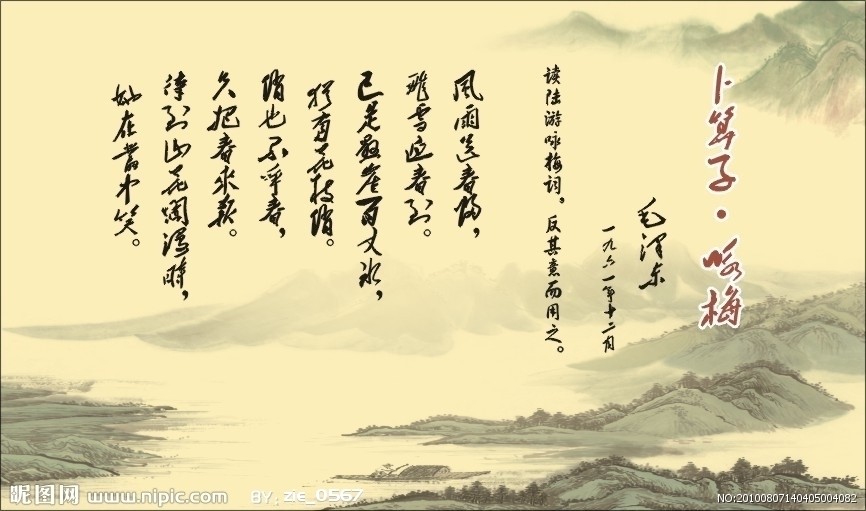 卜算子·咏梅
毛泽东
一九六一年十二月
读陆游咏梅词，反其意而用之。
风雨送春归，
飞雪迎春到。
已是悬崖百丈冰，
犹有花枝俏。
俏也不争春，
只把春来报。
待到山花烂漫时，
她在丛中笑。
昵图网 www.nipic.com BY: zie_0567 NO:20100807140405004082